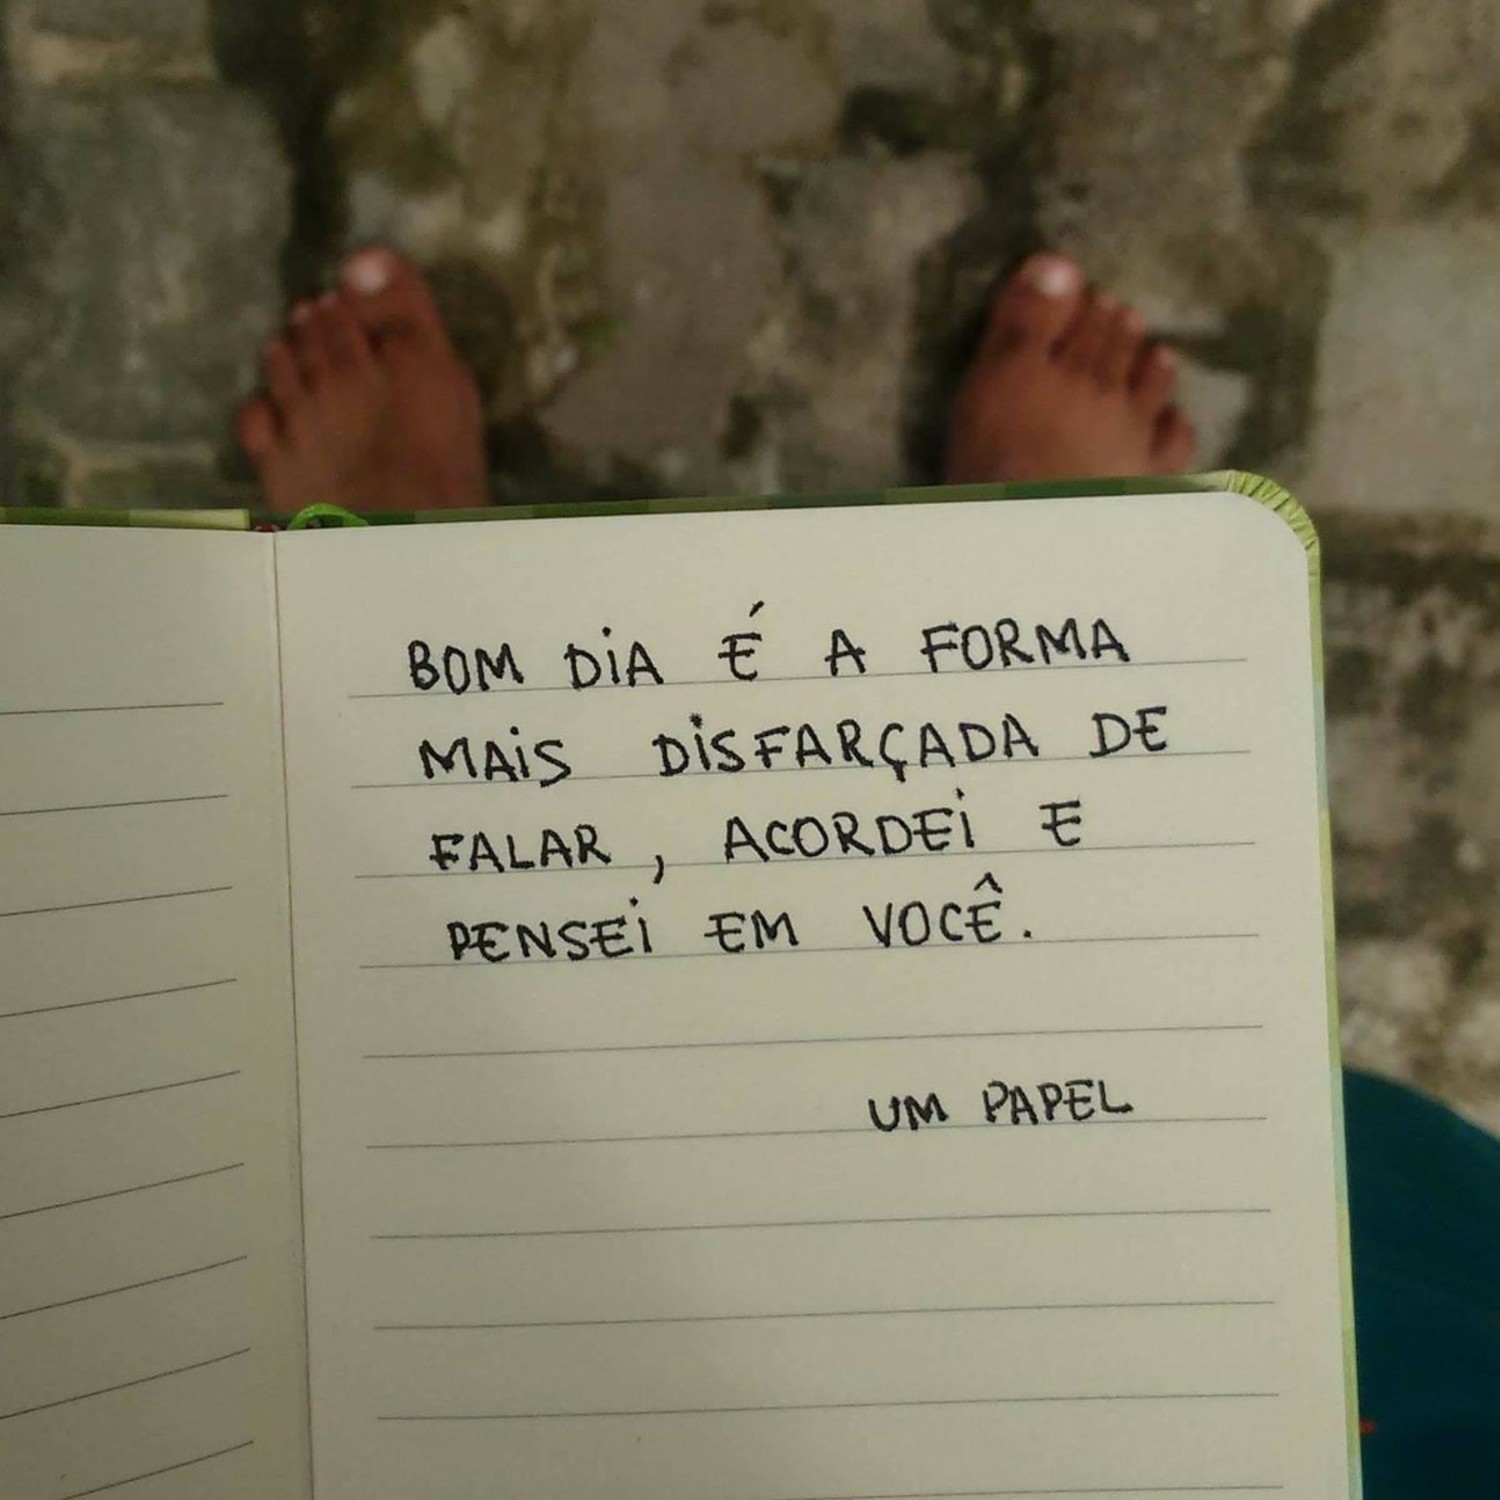 BOM DIA É A FORMA
MAIS DISFARÇADA DE
FALAR, ACORDEI E
PENSEI EM VOCÊ.
UM PAPEL